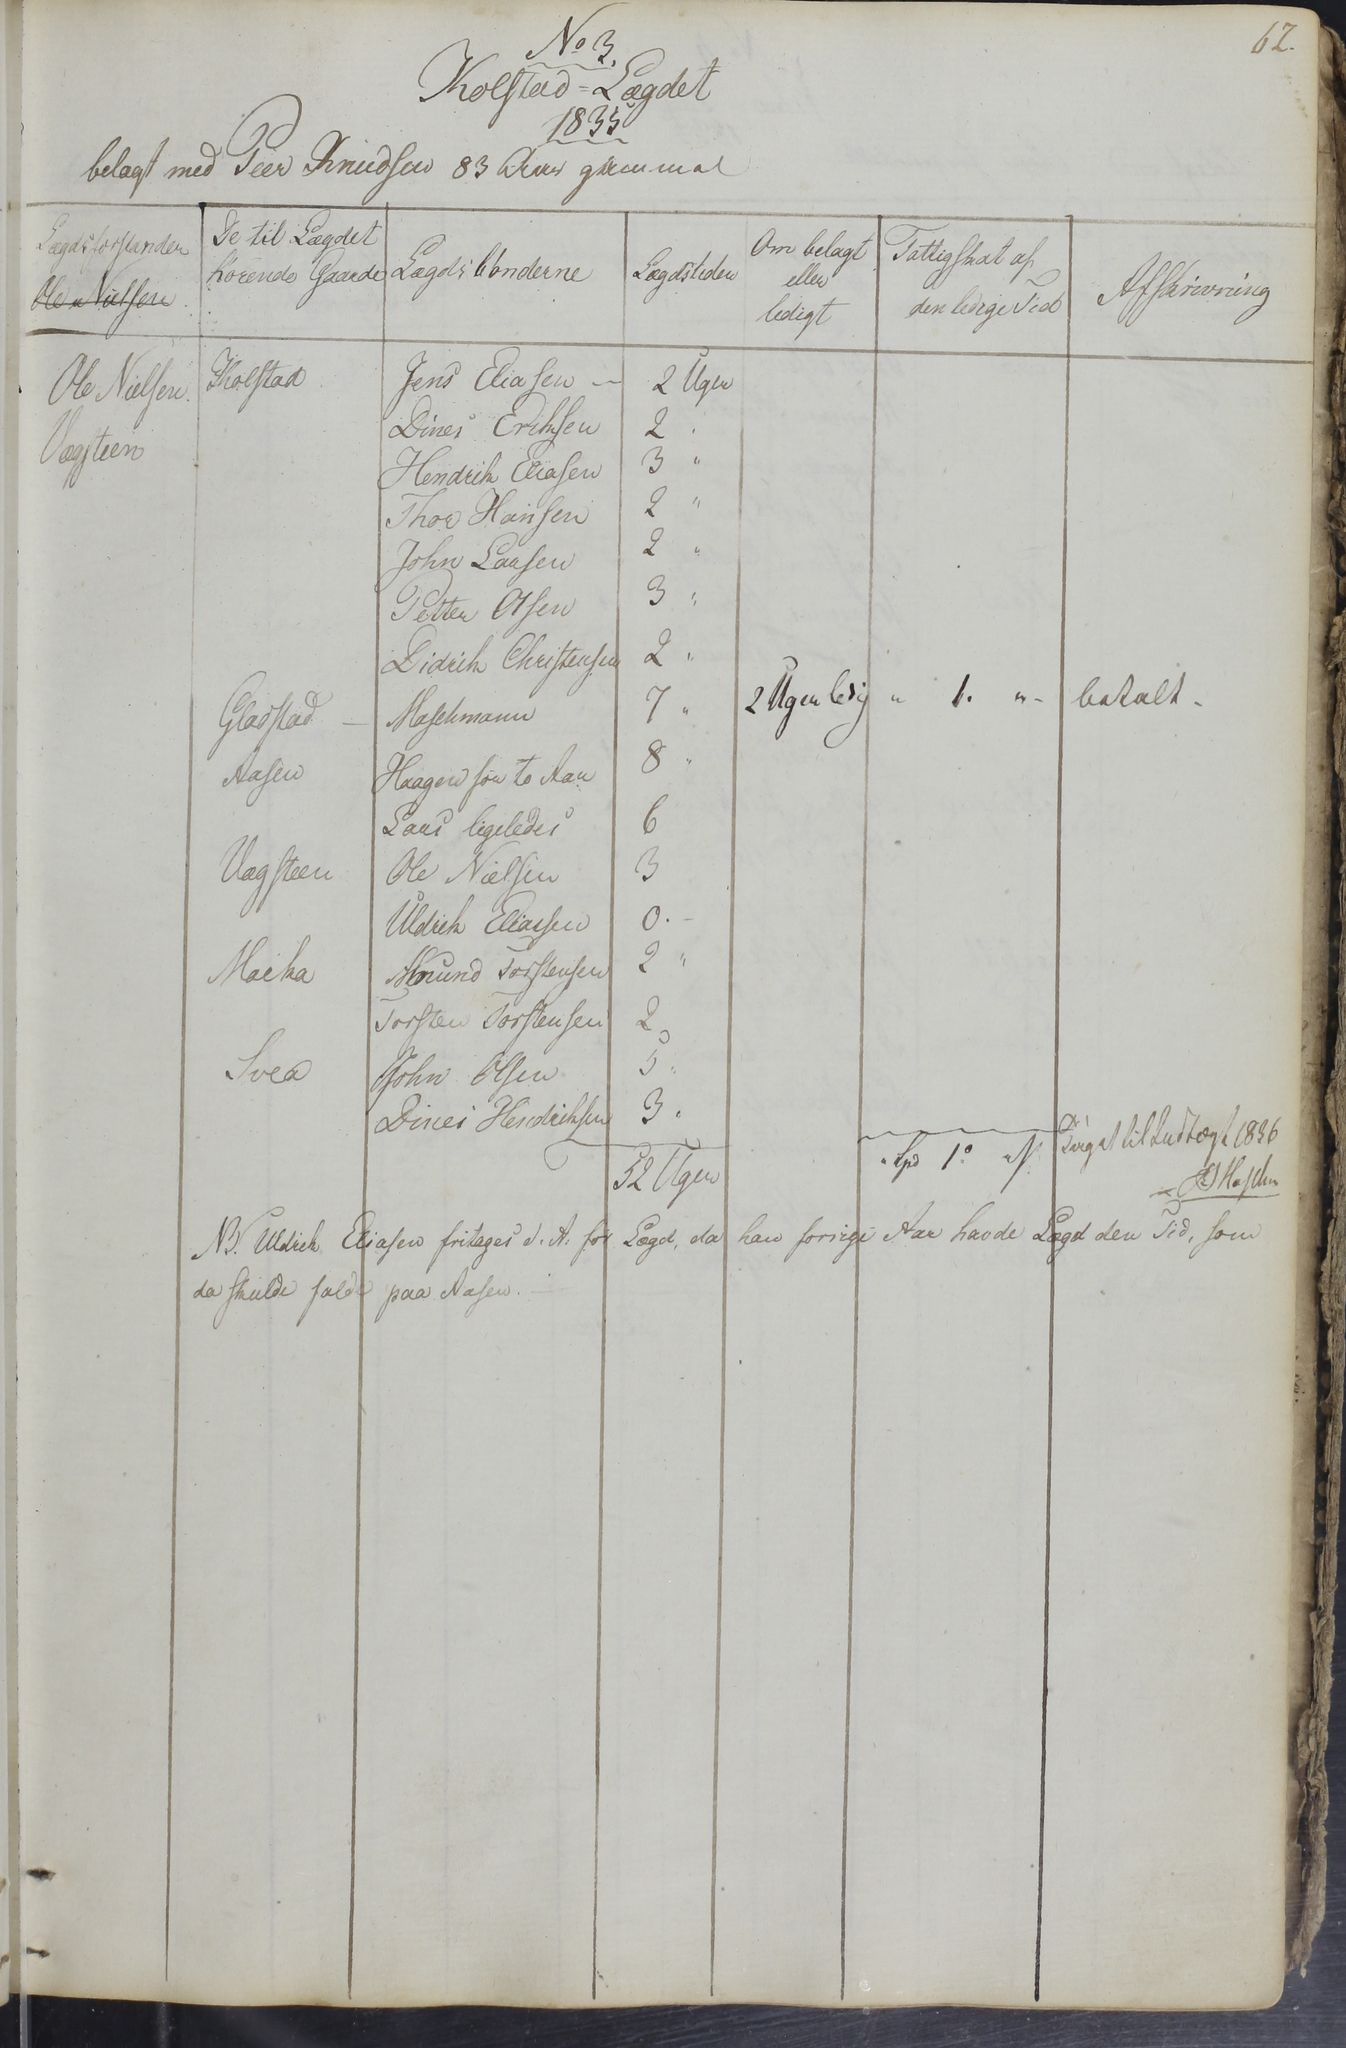 62.
No 3.
Kolstad=Lægdet
1835
belagt med Peer Knudsen 83 Aar gammel
Lægdsforstander Ole Nielsen
De til Lægdet hørende Gaarde
Lægdsbønderne
Lægdstiden
Om belagt eller ledigt
Fattigskat af den ledige Tid
Afskrivning
Ole Nielsen Kolstad Jens Eliasen — 2 Uger
Vagsteen Dines Eriksen 2 "
Hendrik Eliasen 3 "
Thor Hansen 2 "
John Larsen 2 "
Petter Olsen 3 "
Didrik Christensen 2 "
Gladstad — Maschmann 7 " 2 Uger ledig " 1. " - betalt -
Aasen Haagen for to Aar 8 "
Lars ligeledes 6
Vagsteen Ole Nielsen 3
Uldrik Eliassen 0. -
Moeka Amund Torstensen 2 "
Torsten Torstensen 2 "
Svea John Olsen 5 "
Dines Hendriksen 3 "
52 Uger Spd 1 " til Indtægt 1836
NB. Uldrik Eliasen fritages d. A. for Lægd, da han forrige Aar havde Lægd den Tid, som
da skulde falde paa Aasen.